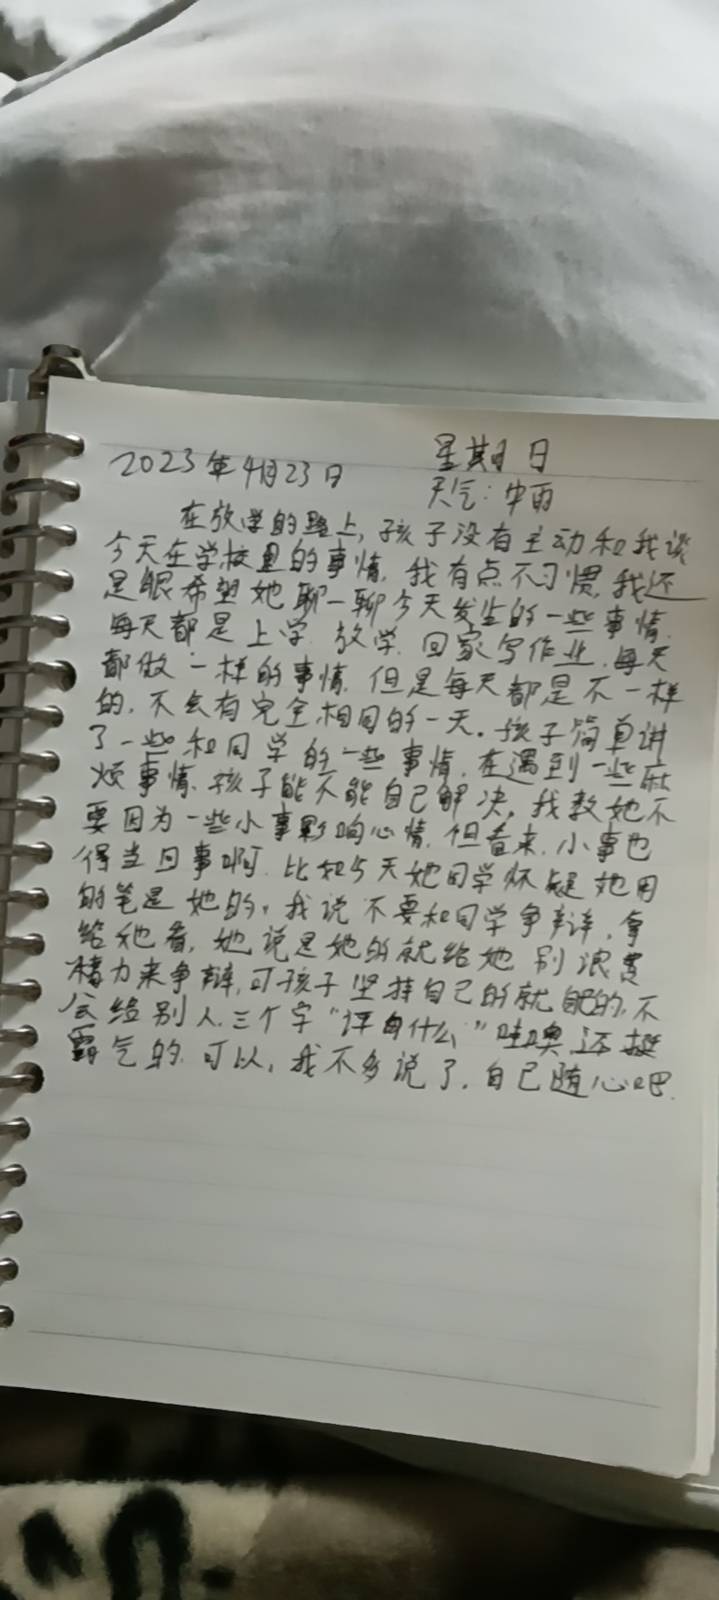 2023年4月23日 星期日
天气:中雨
在放学的路上,孩子没有主动和我谈
今天在学校里的事情,我有点不习惯,我还
是很希望她聊一聊今天发生的一些事情.
每天都是上学.放学.回家写作业,每天
都做一样的事情.但是每天都是不一样
的,不会有完全相同的一天。孩子简单讲
了一些和同学的一些事情,在遇到一些麻
烦事情、孩子能不能自己解决,我教她不
要因为一些小事影响心情,但看来,小事也
得当回事啊.比如今天她同学怀疑她用
的笔是她的,我说不要和同学争辩,拿
给她看,她说是她的就给她,别浪费
精力来争辩,可孩子坚持自己的就是的,不
会给别人.三个字"评自什么"哇噢,还挺
霸气的.可以,我不多说了.自己随心吧.